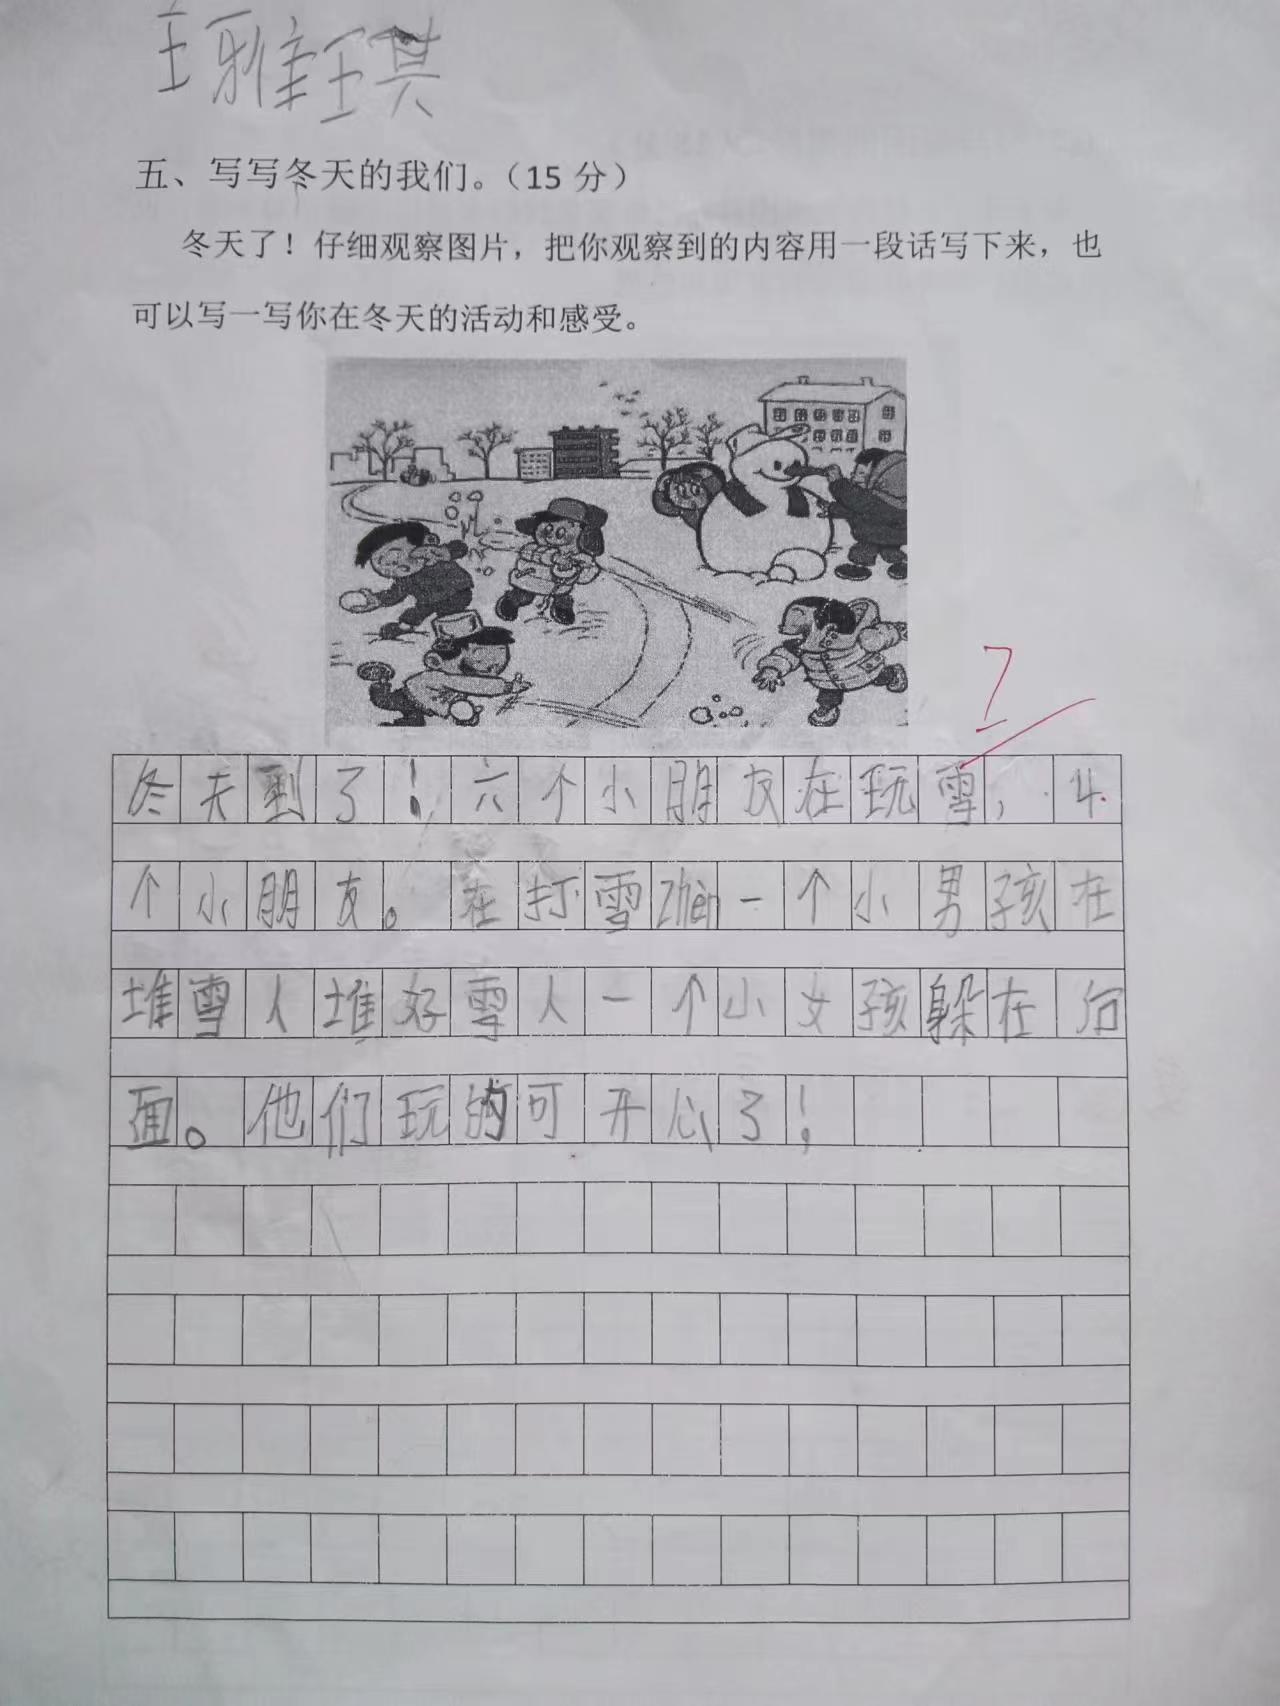 王雅琪
五、写写冬天的我们。（15 分）
冬天了！仔细观察图片，把你观察到的内容用一段话写下来，也
可以写一写你在冬天的活动和感受。
7
冬天到了！六个小朋友在玩雪，4
个小朋友。在打雪zhèn一个小男孩在
堆雪人堆好雪人一个小女孩躲在后
面。他们玩的可开心了！